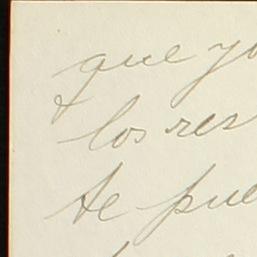 que yo
los res
te pue